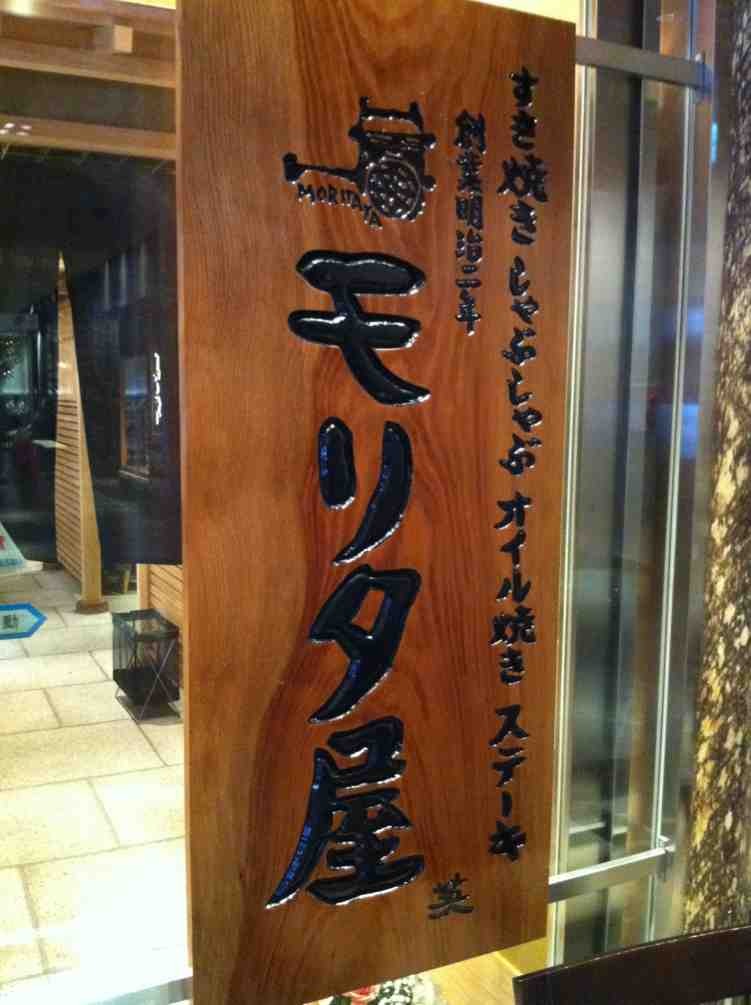 すき焼き しゃぶしゃぶ オイル焼き ステーキ
創業明治二年
MORITAYA
モリタ屋
英
動